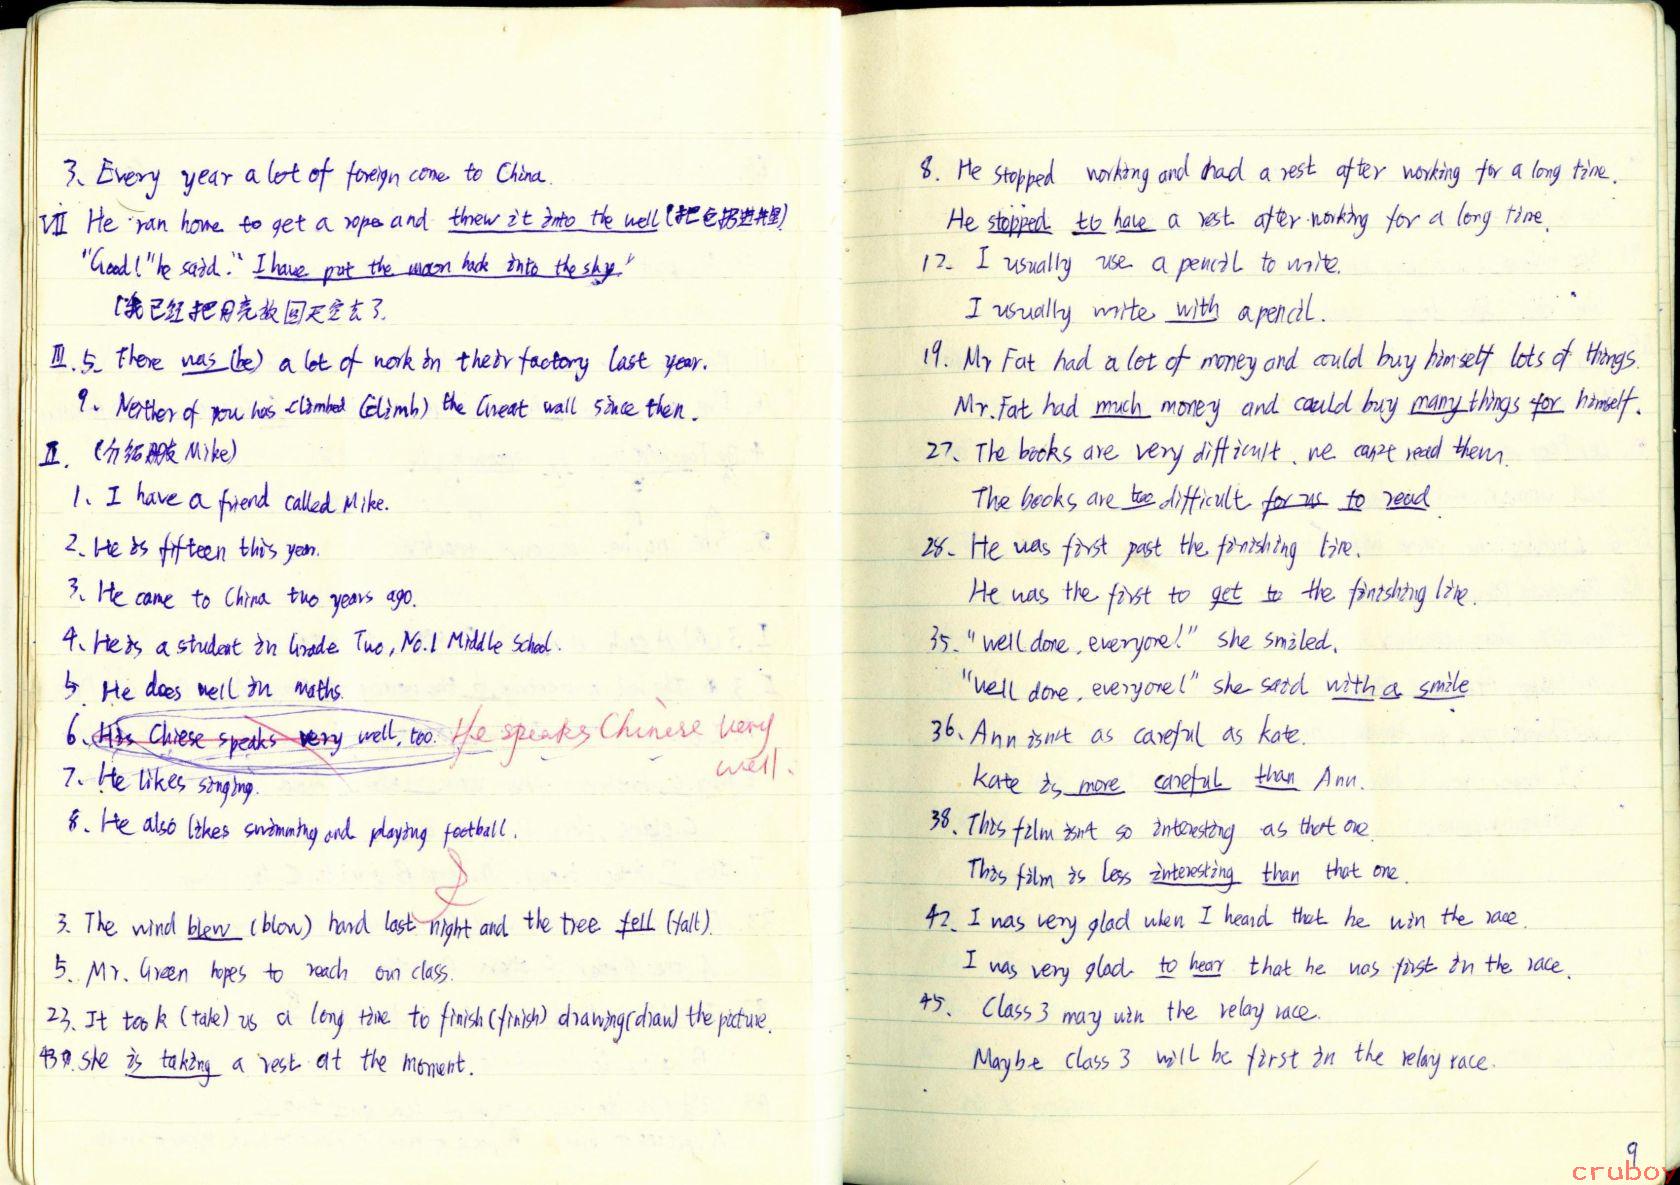 3. Every year a lot of foreign come to China.
VII He ran home to get a rope and threw it into the well (把它扔进井里)
"Good!" he said." I have put the moon back into the sky."
(我已经把月亮放回天空去了.
III. 5. There was (be) a lot of work in their factory last year.
9. Neither of you has climbed (climb) the Great wall since then.
II. (介绍朋友 Mike)
1. I have a friend called Mike.
2. He is fifteen this year.
3. He came to China two years ago.
4. He is a student in Grade Two, No.1 Middle School.
5. He does well in maths.
6. His Chiese speaks very well, too. He speaks Chinese very
well.
7. He likes singing.
8. He also likes swimming and playing football.
3. The wind blew (blow) hard last night and the tree fell (fall).
5. Mr. Green hopes to reach our class.
23. It took (take) us a long time to finish (finish) drawing (draw) the picture.
She is taking a rest at the moment.
8. He stopped working and had a rest after working for a long time.
He stopped to have a rest after working for a long time.
12. I usually use a pencil to write.
I usually write with a pencil.
19. Mr Fat had a lot of money and could buy himself lots of things.
Mr. Fat had much money and could buy many things for himself.
27. The books are very difficult, we can't read them.
The books are too difficult for us to read.
28. He was first past the finishing line.
He was the first to get to the finishing line.
35. "Well done, everyone!" she smiled.
"Well done, everyone!" she said with a smile.
36. Ann isn't as careful as Kate.
Kate is more careful than Ann.
38. This film isn't so interesting as that one.
This film is less interesting than that one.
42. I was very glad when I heard that he win the race.
I was very glad to hear that he was first in the race.
45. Class 3 may win the relay race.
Maybe Class 3 will be first in the relay race.
9
cruboy